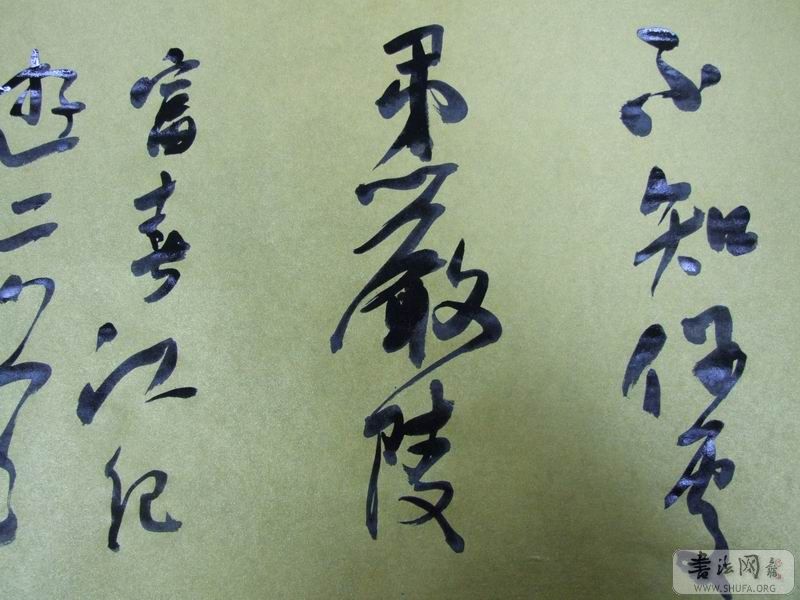 不知何處
弔嚴陵
富春江紀
遊二首
書法网
WWW.SHUFA.ORG